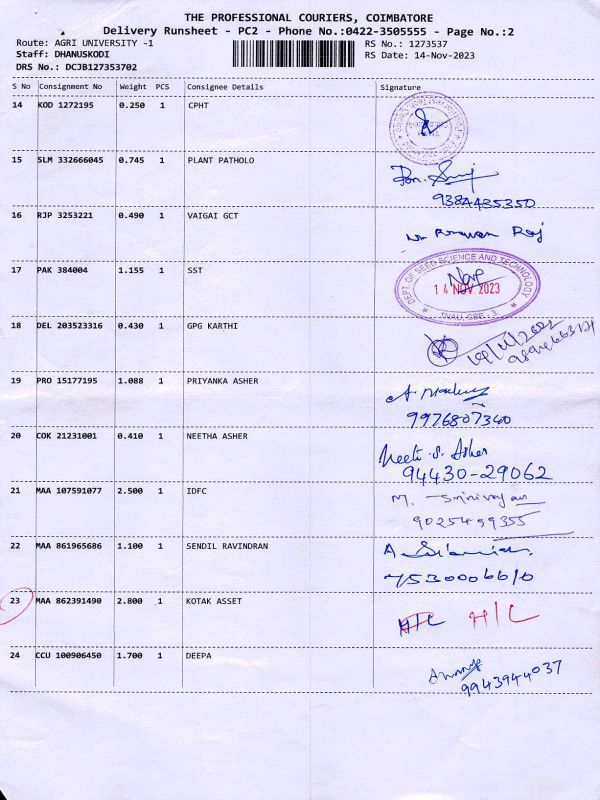 THE PROFESSIONAL COURIERS, COIMBATORE
Delivery Runsheet - PC2 - Phone No.:0422-3505555 - Page No.:2
Route: AGRI UNIVERSITY -1 RS No.: 1273537
Staff: DHANUSKODI RS Date: 14-Nov-2023
DRS No.: DCJB127353702
S No Consignment No Weight PCS Consignee Details Signature
14 KOD 1272195 0.250 1 CPHT
15 SLM 332666045 0.745 1 PLANT PATHOLO
9384435350
16 RJP 3253221 0.490 1 VAIGAI GCT
Raj
17 PAK 384004 1.155 1 SST
DEPT. OF SEED SCIENCE AND TECHNOLOGY
14 NOV 2023
TNAU, CBE - 3.
18 DEL 203523316 0.430 1 GPG KARTHI
19 PRO 15177195 1.088 1 PRIYANKA ASHER
9976807340
20 COK 21231001 0.410 1 NEETHA ASHER
Neeti S. Asher
94430-29062
21 MAA 107591077 2.500 1 IDFC
M. Srinivasan
9025499355
22 MAA 861965686 1.100 1 SENDIL RAVINDRAN
7530006610
23 MAA 862391490 2.800 1 KOTAK ASSET
H/C H/C
24 CCU 100906450 1.700 1 DEEPA
9943944037